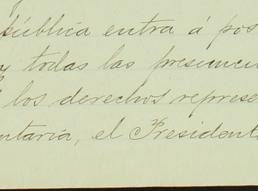 pública entra á pos
y todas las presunci
los derechos represe
ntaria, el President